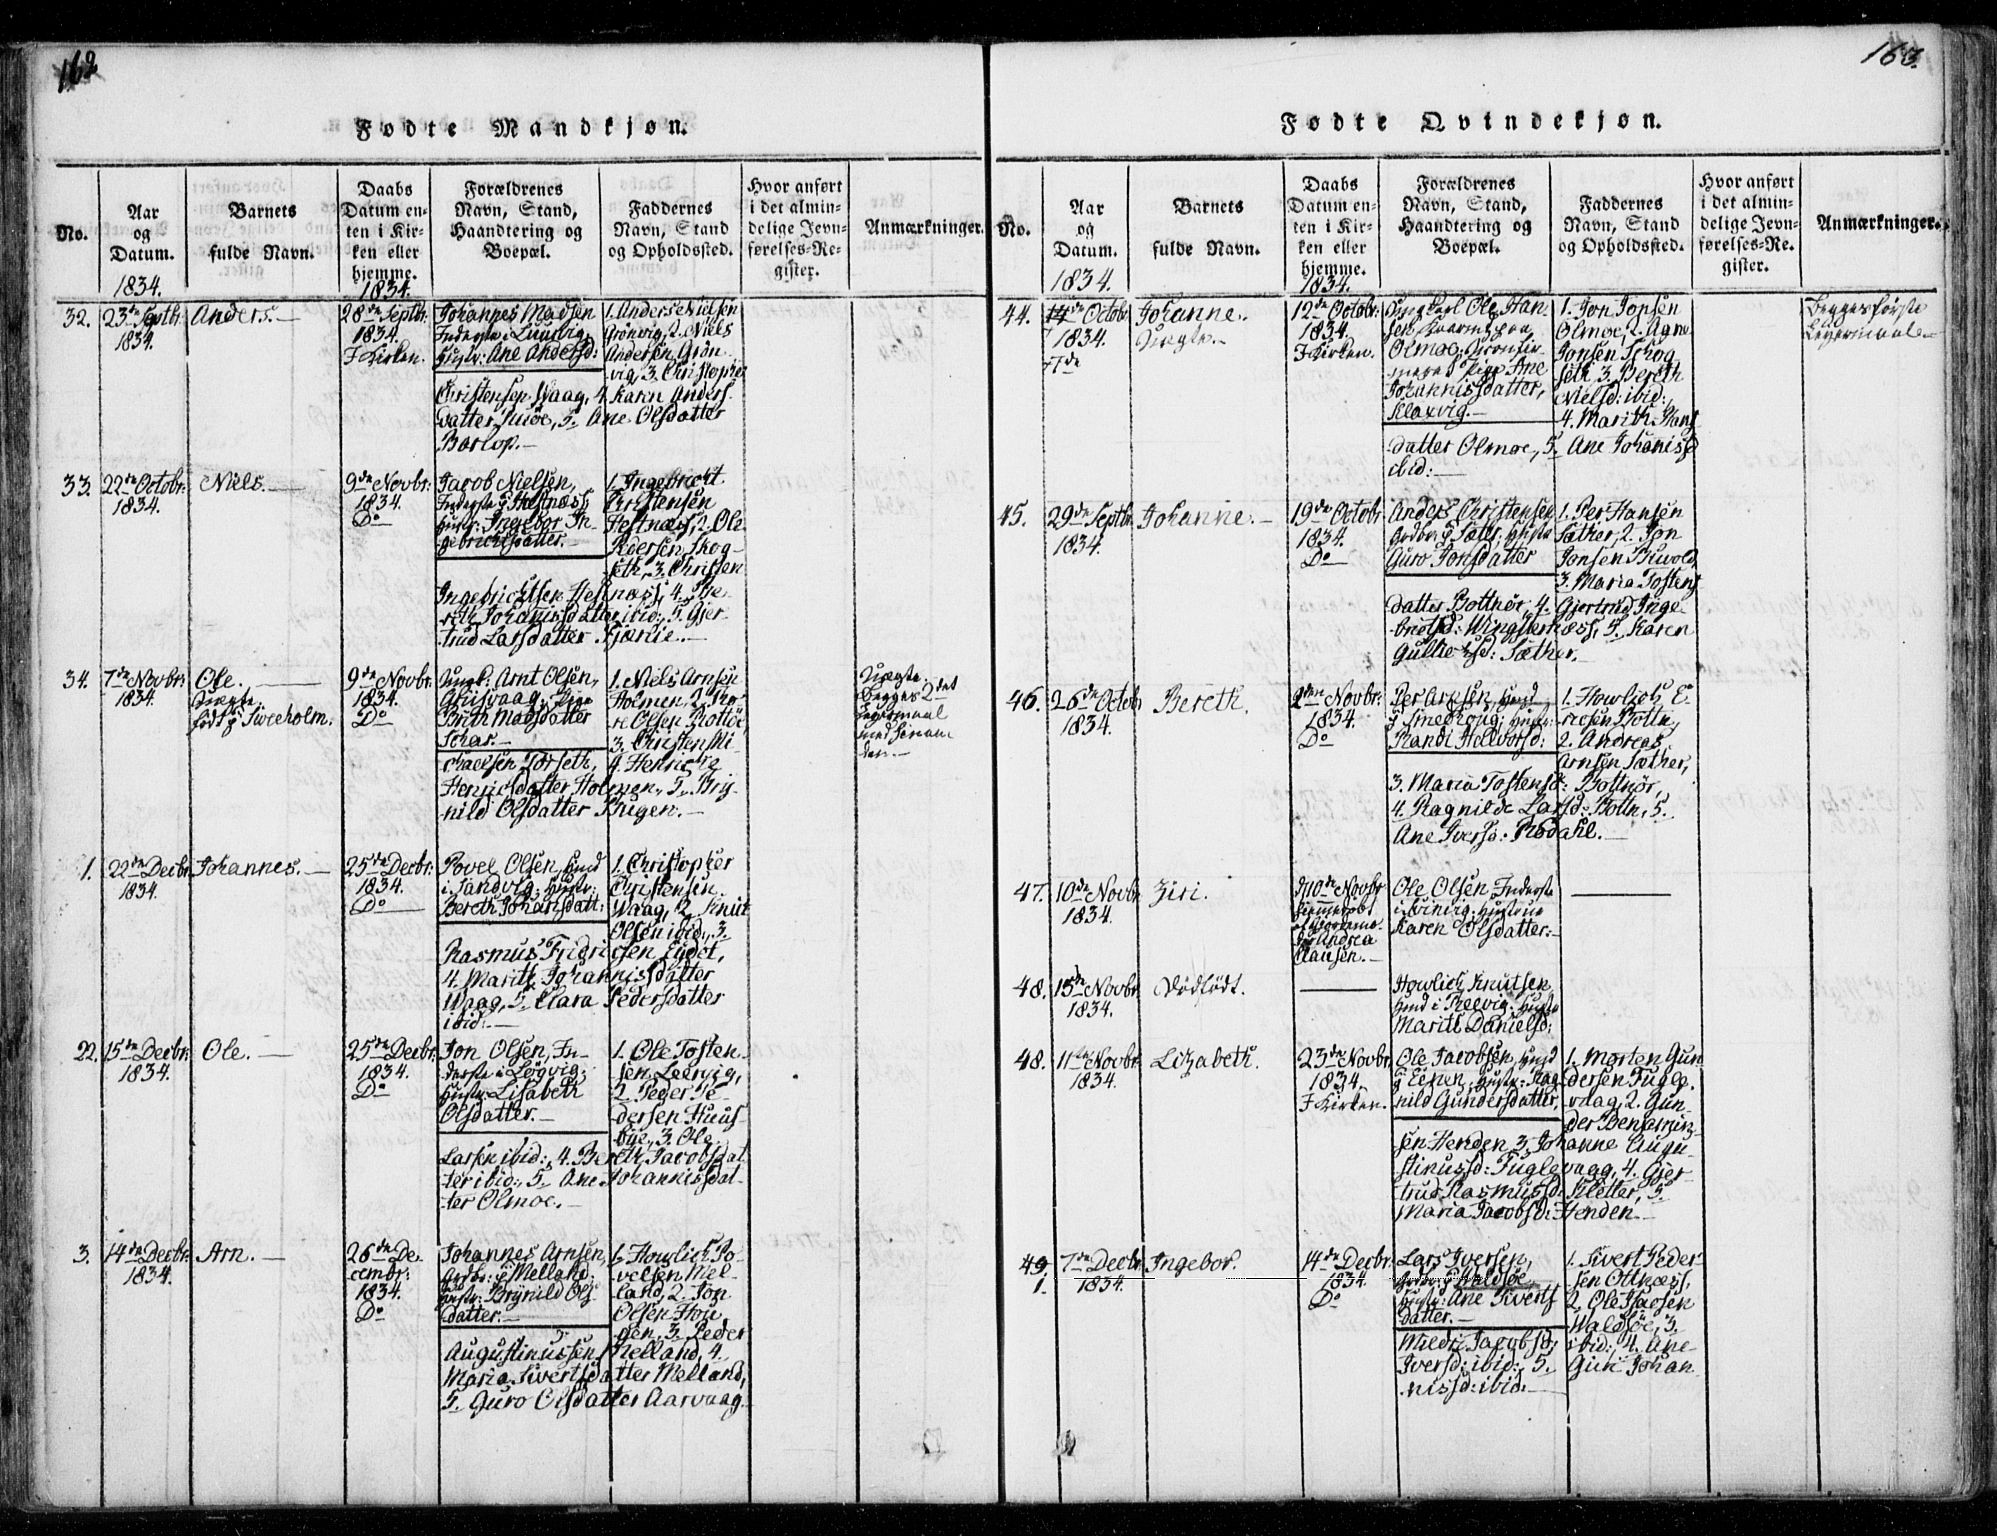 162
Fødte Mandkjøn.
No.
Aar
og
Datum.
1834.
Barnets
fulde Navn.
Daabs
Datum en-
ten i Kir-
ken eller
hjemme.
1834.
Forældrenes
Navn, Stand,
Haandtering og
Boepæl.
Faddernes
Navn, Stand
og Opholdssted.
Hvor anført
i det almin-
delige Jevn-
førelses-Re-
gister.
Anmærkninger.
32.
23de Septbr:
1834.
Anders.
28de Septbr:
1834.
I Kirken.
Johannes Madsen
Inderste i
Hustr: Ane Andersd:
1. Anders Nielsen
Grönvig, 2. Niels
Andersen Grön-
vig, 3. Christopher
Christensen Waag, 4. Karen Anders-
datter 5. Ane Olsdatter
33.
22de Octobr:
1834.
Niels.
9de Novbr:
1834.
Do
Jacob Nielsen,
Inderste p Hestnæss;
Hustr: Ingebor In-
gebrichtsdatter.
1. Ingebricht
Christensen
Hestnæss, 2. Ole
Pedersen Skog-
seth, 3. Christen
Ingebrichtsen Hestnæss, 4. Be-
reth Johannisdatter ibid:, 5. Gjer-
trud Larsdatter
34.
7de Novbr:
1834.
Ole.
Uægte
født p
9de Novbr:
1834.
Do
Ungk: Arnt Olsen,
Pige
Brith Madsdatter
1. Niels Arnsen
Holmen, 2. To-
re Olsen
3. Christen Mi-
chaelsen Torseth, 4. Henriche
Henricsdatter Holmen, 5. Brÿ-
nild Olsdatter Bugen.
Uægte.
Begges 2det
Leiermaal
1.
22de Decbr:
1834.
Johannes.
25de Decbr:
1834.
Do
Povel Olsen, Hmd
i Sandvig; Hustr:
Bereth Johansdatt:
1. Christopher
Christensen
Waag, 2. Knut
Olsen ibid:, 3.
Rasmus Fridricsen
4. Marith Johannisdatter
Waag, 5. Clara Pedersdatter
ibid:
22.
15de Decbr:
1834.
Ole.
25de Decbr:
1834.
Do
Jon Olsen, In-
derste i Løgvig;
Hustr: Lisabeth
Olsdatter.
1. Ole Tosten-
sen Leervig,
2. Peder Pe-
dersen Huus-
bye, 3. Ole
Larsen ibid:, 4. Bereth Jacobsdat-
ter ibid:, 5. Ane Johannisdat-
ter Olmoe.
3.
14de Decbr:
1834.
Arn.
26de De-
cembr:
1834.
Do
Johannes Arnsen,
Grdbr: p Melland;
Hustr: Brÿnild Ols-
datter.
1. Howlich Po-
velsen Mel-
land, 2. Jon
Olsen Hou-
gen, 3. Peder
Augustinussen Melland, 4.
Maria Sivertsdatter Melland,
5. Guro Olsdatter Aarvaag.
163.
Fødte Qvindekjøn.
No.
Aar
og
Datum.
1834.
Barnets
fulde Navn.
Daabs
Datum en-
ten i Kir-
ken eller
hjemme.
1834.
Forældrenes
Navn, Stand,
Haandtering og
Boepæl.
Faddernes
Navn, Stand
og Opholdssted.
Hvor anført
i det almin-
delige Jevn-
førelses-Re-
gister.
Anmærkninger.
44.
Octobr:
1834.
7de
Johanne.
Uægte.
12de Octobr:
1834.
I Kirken.
Ungkarl Ole Han-
sen,
Olmoe; Confir-
meret Pige Ane
Johannisdatter,
Klaxvig.
1. Jon Jonsen
Olmoe, 2. Agne
Jonsen Skog-
seth 3. Bereth
Nielsd: ibid:,
4. Marith Hans-
datter Olmoe, 5. Ane Johanisd
ibid:
Begges første
Leiermaal.
45.
29de Septbr:
1834.
Johanne.
19de Octobr:
1834.
Do
Anders Christensen
Grdbr: p Sæter; Hustr:
Guro Jonsdatter
1. Per Hansen
Sæther, 2. Jon
Jonsen
3. Maria Tostens-
datter Bottnör, 4. Gjertrud Inge-
brigtsd: 5. Karen
Gullic sd: Sæther.
46.
26de Octobr:
1834.
Bereth.
2den Novbr:
1834.
Do
Per Hmd
p Hustr:
Randi Hellvorsd:
1. Howlich E-
ricsen Bottn,
2. Andreas
Arnsen Sæther,
3. Maria Tostensd: Bottnör,
4. Ragnilde Larsd: Bottn, 5.
Ane Iversd: Rödahl.
47.
10de Novbr:
1834.
Ziri.
d 10de Novbr
hjemmedøbt
af
Andrea
Clausen.
Ole Olsen, Inderste
i Hustrue
Karen Olsdatter.
48.
15de Novbr:
1834.
Dödfödt.
Howlich Knutsen,
Hmd i Hustr:
Marith Danielsd:
48.
11te Novbr:
1834.
Lizabeth.
23de Novbr:
1834.
I Kirken.
Ole Jacobsen, Hmd
p Hustr: Rag-
nild Gundersdatter,
1. Morten Gun-
dersen Fugle-
vaag, 2. Gun-
der Benjamin-
sen Henden 3. Johanne Augu-
stinusd: Fuglevaag, 4. Gjer-
trud Rasmusd: Kletter, 5.
Maria Jacobsd: Henden
49.
1.
7de Decbr:
1834.
Ingebor.
14de Decbr:
1834.
Do
Lars Iversen,
Grdbr: p Waldsøe
Hustr: Ane Siverts-
datter.
1. Sivert Peder-
sen Ottnæss,
2. Ole Isacsen
Waldsøe, 3.
Mildri Jacobsd: ibid:, 4. Ane
Iversd: ibid:, 5. Guri Johan-
nisd: ibid: